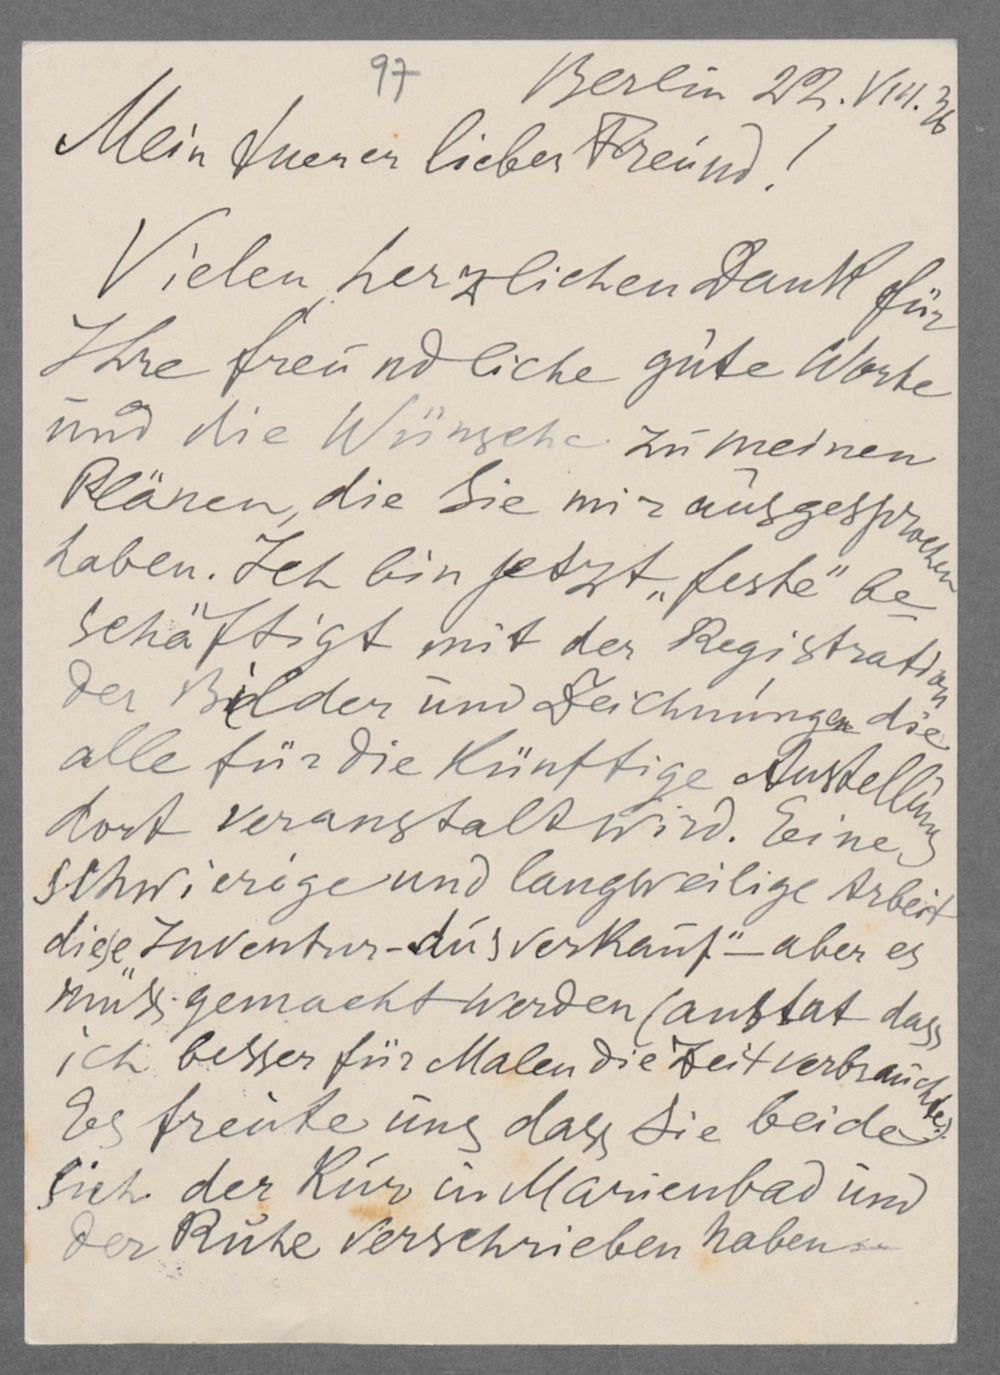 97
Berlin 22. VIII. 36
Mein tuerer lieber Freund!
Vielen, herzlichen Dank für
Ihre freundliche gute Worte
und die Wünsche zu meinen
Plänen, die Sie mir ausgesprochen
haben. Ich bin jetzt „feste" be
schäftigt mit der Registration
der Bilder und Zeichnungen die
alle für die Künftige Austellung
dort veranstalt wird. Eine
schwierige und langweilige Arbeit
diese Inventur-Ausverkauf" – aber es
muss gemacht werden (anstat dass
ich besser für Malen die Zeit verbrauchte).
Es freute uns dass Sie beide
sich der Kur in Marienbad und
der Ruhe verschrieben haben